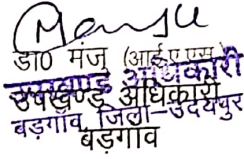 डा0 मंजु (आई.ए.एस.)
उपखण्ड अधिकारी
उपखण्ड अधिकारी
बड़गाँव, जिला-उदयपुर
बड़गाव